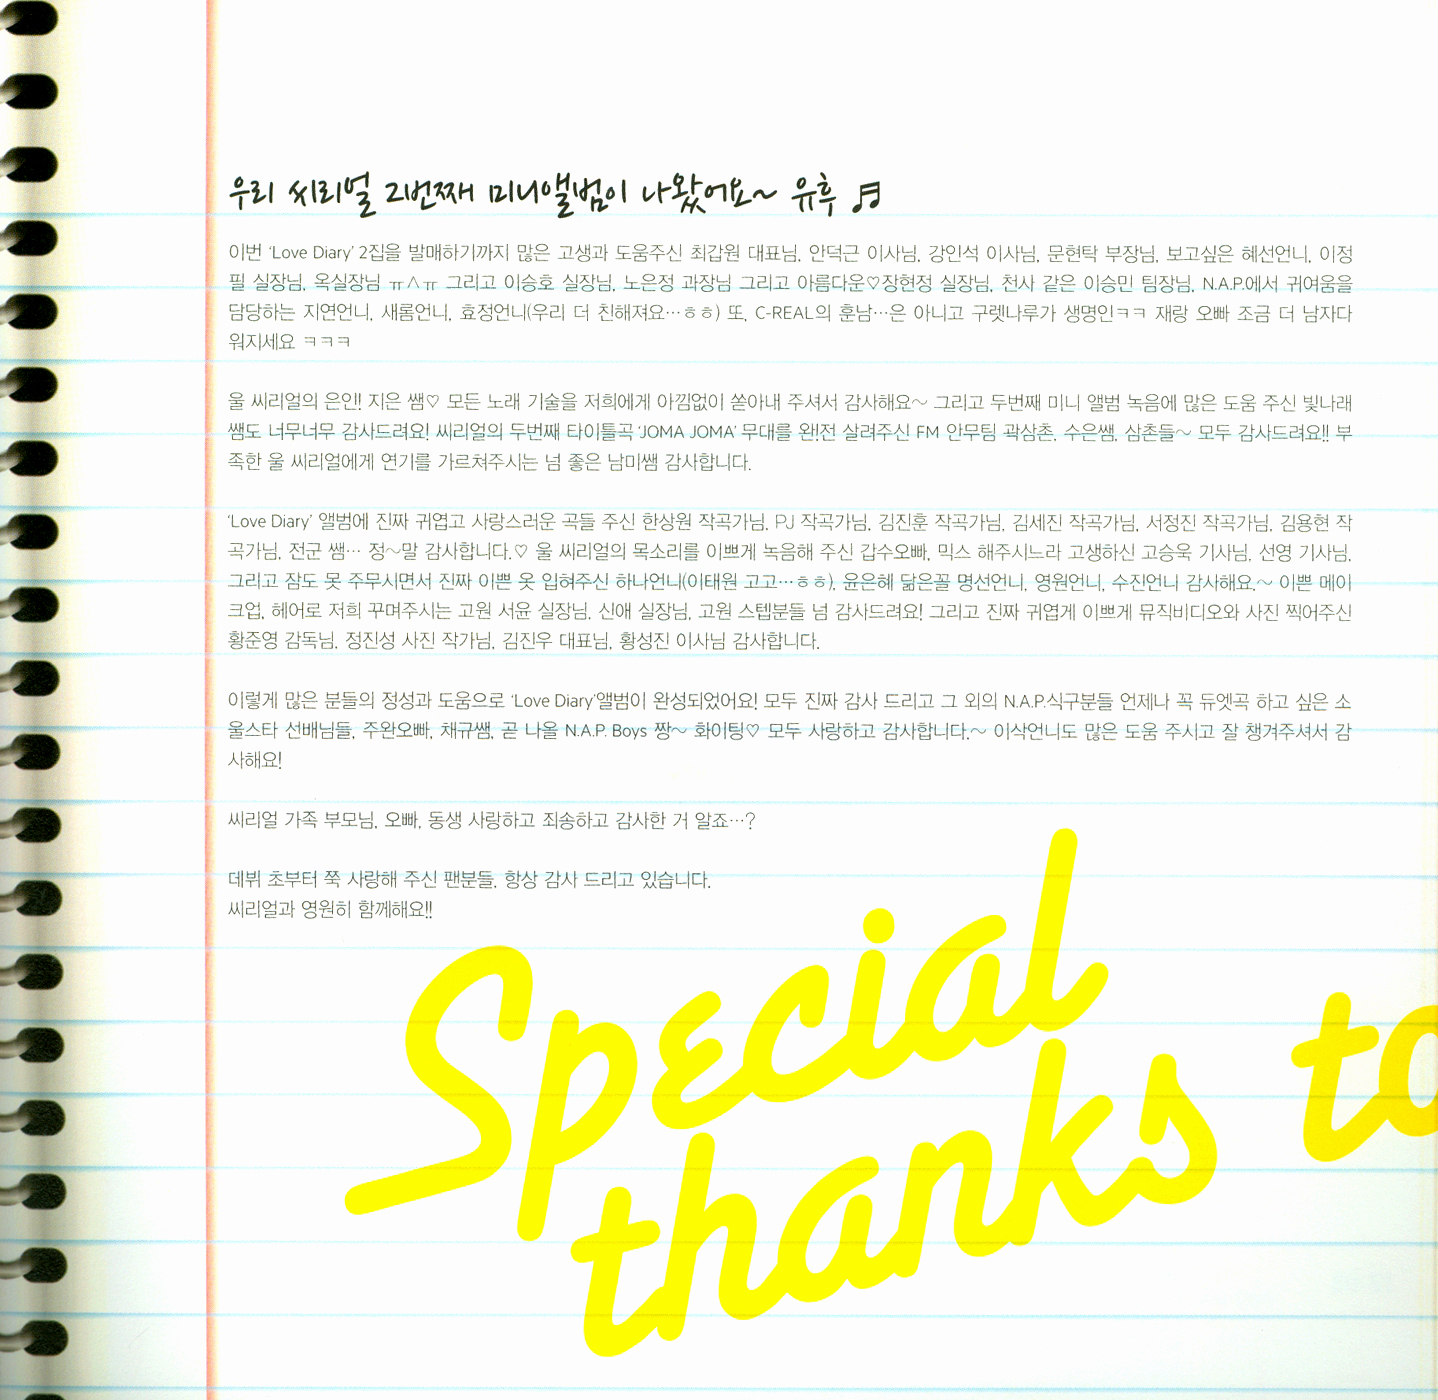 우리 씨리얼 2번째 미니앨범이 나왔어요~ 유후 ♬
이번 ‘Love Diary’ 2집을 발매하기까지 많은 고생과 도움주신 최갑원 대표님, 안덕근 이사님, 강인석 이사님, 문현탁 부장님, 보고싶은 혜선언니, 이정
필 실장님, 옥실장님 ㅠ^ㅠ 그리고 이승호 실장님, 노은정 과장님 그리고 아름다운♡장현정 실장님, 천사 같은 이승민 팀장님, N.A.P.에서 귀여움을
담당하는 지연언니, 새롬언니, 효정언니(우리 더 친해져요…ㅎㅎ) 또, C-REAL의 훈남…은 아니고 구렛나루가 생명인ㅋㅋ 재랑 오빠 조금 더 남자다
워지세요 ㅋㅋㅋ
울 씨리얼의 은인! 지은 쌤♡ 모든 노래 기술을 저희에게 아낌없이 쏟아내 주셔서 감사해요~ 그리고 두번째 미니 앨범 녹음에 많은 도움 주신 빛나래
쌤도 너무너무 감사드려요! 씨리얼의 두번째 타이틀곡 ‘JOMA JOMA’ 무대를 완!전 살려주신 FM 안무팀 곽삼촌, 수은쌤, 삼촌들~ 모두 감사드려요!! 부
족한 울 씨리얼에게 연기를 가르쳐주시는 넘 좋은 남미쌤 감사합니다.
‘Love Diary’ 앨범에 진짜 귀엽고 사랑스러운 곡들 주신 한상원 작곡가님, PJ 작곡가님, 김진훈 작곡가님, 김세진 작곡가님, 서정진 작곡가님, 김용현 작
곡가님, 전군 쌤… 정~말 감사합니다.♡ 울 씨리얼의 목소리를 이쁘게 녹음해 주신 갑수오빠, 믹스 해주시느라 고생하신 고승욱 기사님, 선영 기사님,
그리고 잠도 못 주무시면서 진짜 이쁜 옷 입혀주신 하나언니(이태원 고고…ㅎㅎ), 윤은혜 닮은꼴 명선언니, 영원언니, 수진언니 감사해요.~ 이쁜 메이
크업, 헤어로 저희 꾸며주시는 고원 서윤 실장님, 신애 실장님, 고원 스텝분들 넘 감사드려요! 그리고 진짜 귀엽게 이쁘게 뮤직비디오와 사진 찍어주신
황준영 감독님, 정진성 사진 작가님, 김진우 대표님, 황성진 이사님 감사합니다.
이렇게 많은 분들의 정성과 도움으로 ‘Love Diary’앨범이 완성되었어요! 모두 진짜 감사 드리고 그 외의 N.A.P.식구분들 언제나 꼭 듀엣곡 하고 싶은 소
울스타 선배님들, 주완오빠, 채규쌤, 곧 나올 N.A.P. Boys 짱~ 화이팅♡ 모두 사랑하고 감사합니다.~ 이삭언니도 많은 도움 주시고 잘 챙겨주셔서 감
사해요!
씨리얼 가족 부모님, 오빠, 동생 사랑하고 죄송하고 감사한 거 알죠…?
데뷔 초부터 쭉 사랑해 주신 팬분들, 항상 감사 드리고 있습니다.
씨리얼과 영원히 함께해요!!
Special
thanks to